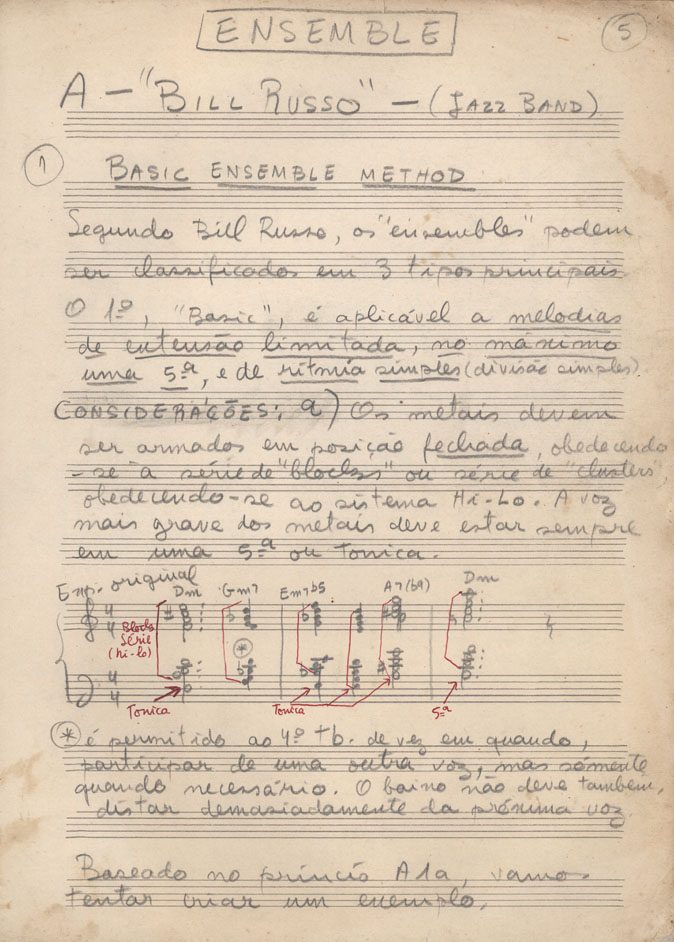 ENSEMBLE
5
A - "BILL RUSSO" - (JAZZ BAND)
1 BASIC ENSEMBLE METHOD
Segundo Bill Russo, os "ensembles" podem
ser classificados em 3 tipos principais
O 1º, "Basic", é aplicável a melodias
de extensão limitada, no máximo
uma 5ª, e de ritmia simples (divisão simples).
CONSIDERAÇÕES: a) Os metais devem
ser armados em posição fechada, obedecendo
-se à série de "blocks" ou série de "clusters",
obedecendo-se ao sistema Hi-Lo. A voz
mais grave dos metais deve estar sempre
em uma 5ª ou Tonica.
original
Dm Gm7 Em7b5 A7(b9) Dm
4 4
Block
Série
(hi-lo)
*
4 4
Tonica Tonica 5ª
* é permitido ao 4º tb. de vez em quando,
participar de uma outra voz, mas sòmente
quando necessário. O baixo não deve também,
distar demasiadamente da próxima voz
Baseado no princío A1a, vamos
tentar criar um exemplo.